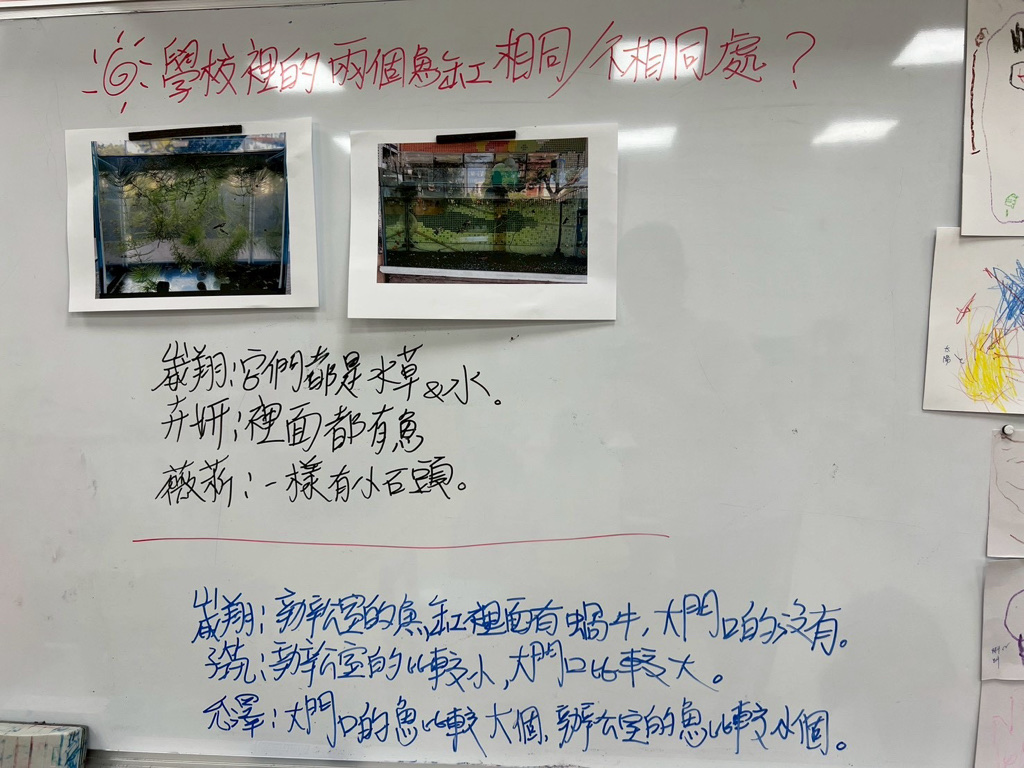 學校裡的兩個魚缸相同/不相同處?
崴翔:它們都是水草&水。
卉妍:裡面都有魚
薇菥:一樣有小石頭。
崴翔:辦公室的魚缸裡面有蝸牛,大門口的沒有。
辦公室的比較小,大門口比較大。
大門口的魚比較大個,辦公室的魚比較小個。
太陽